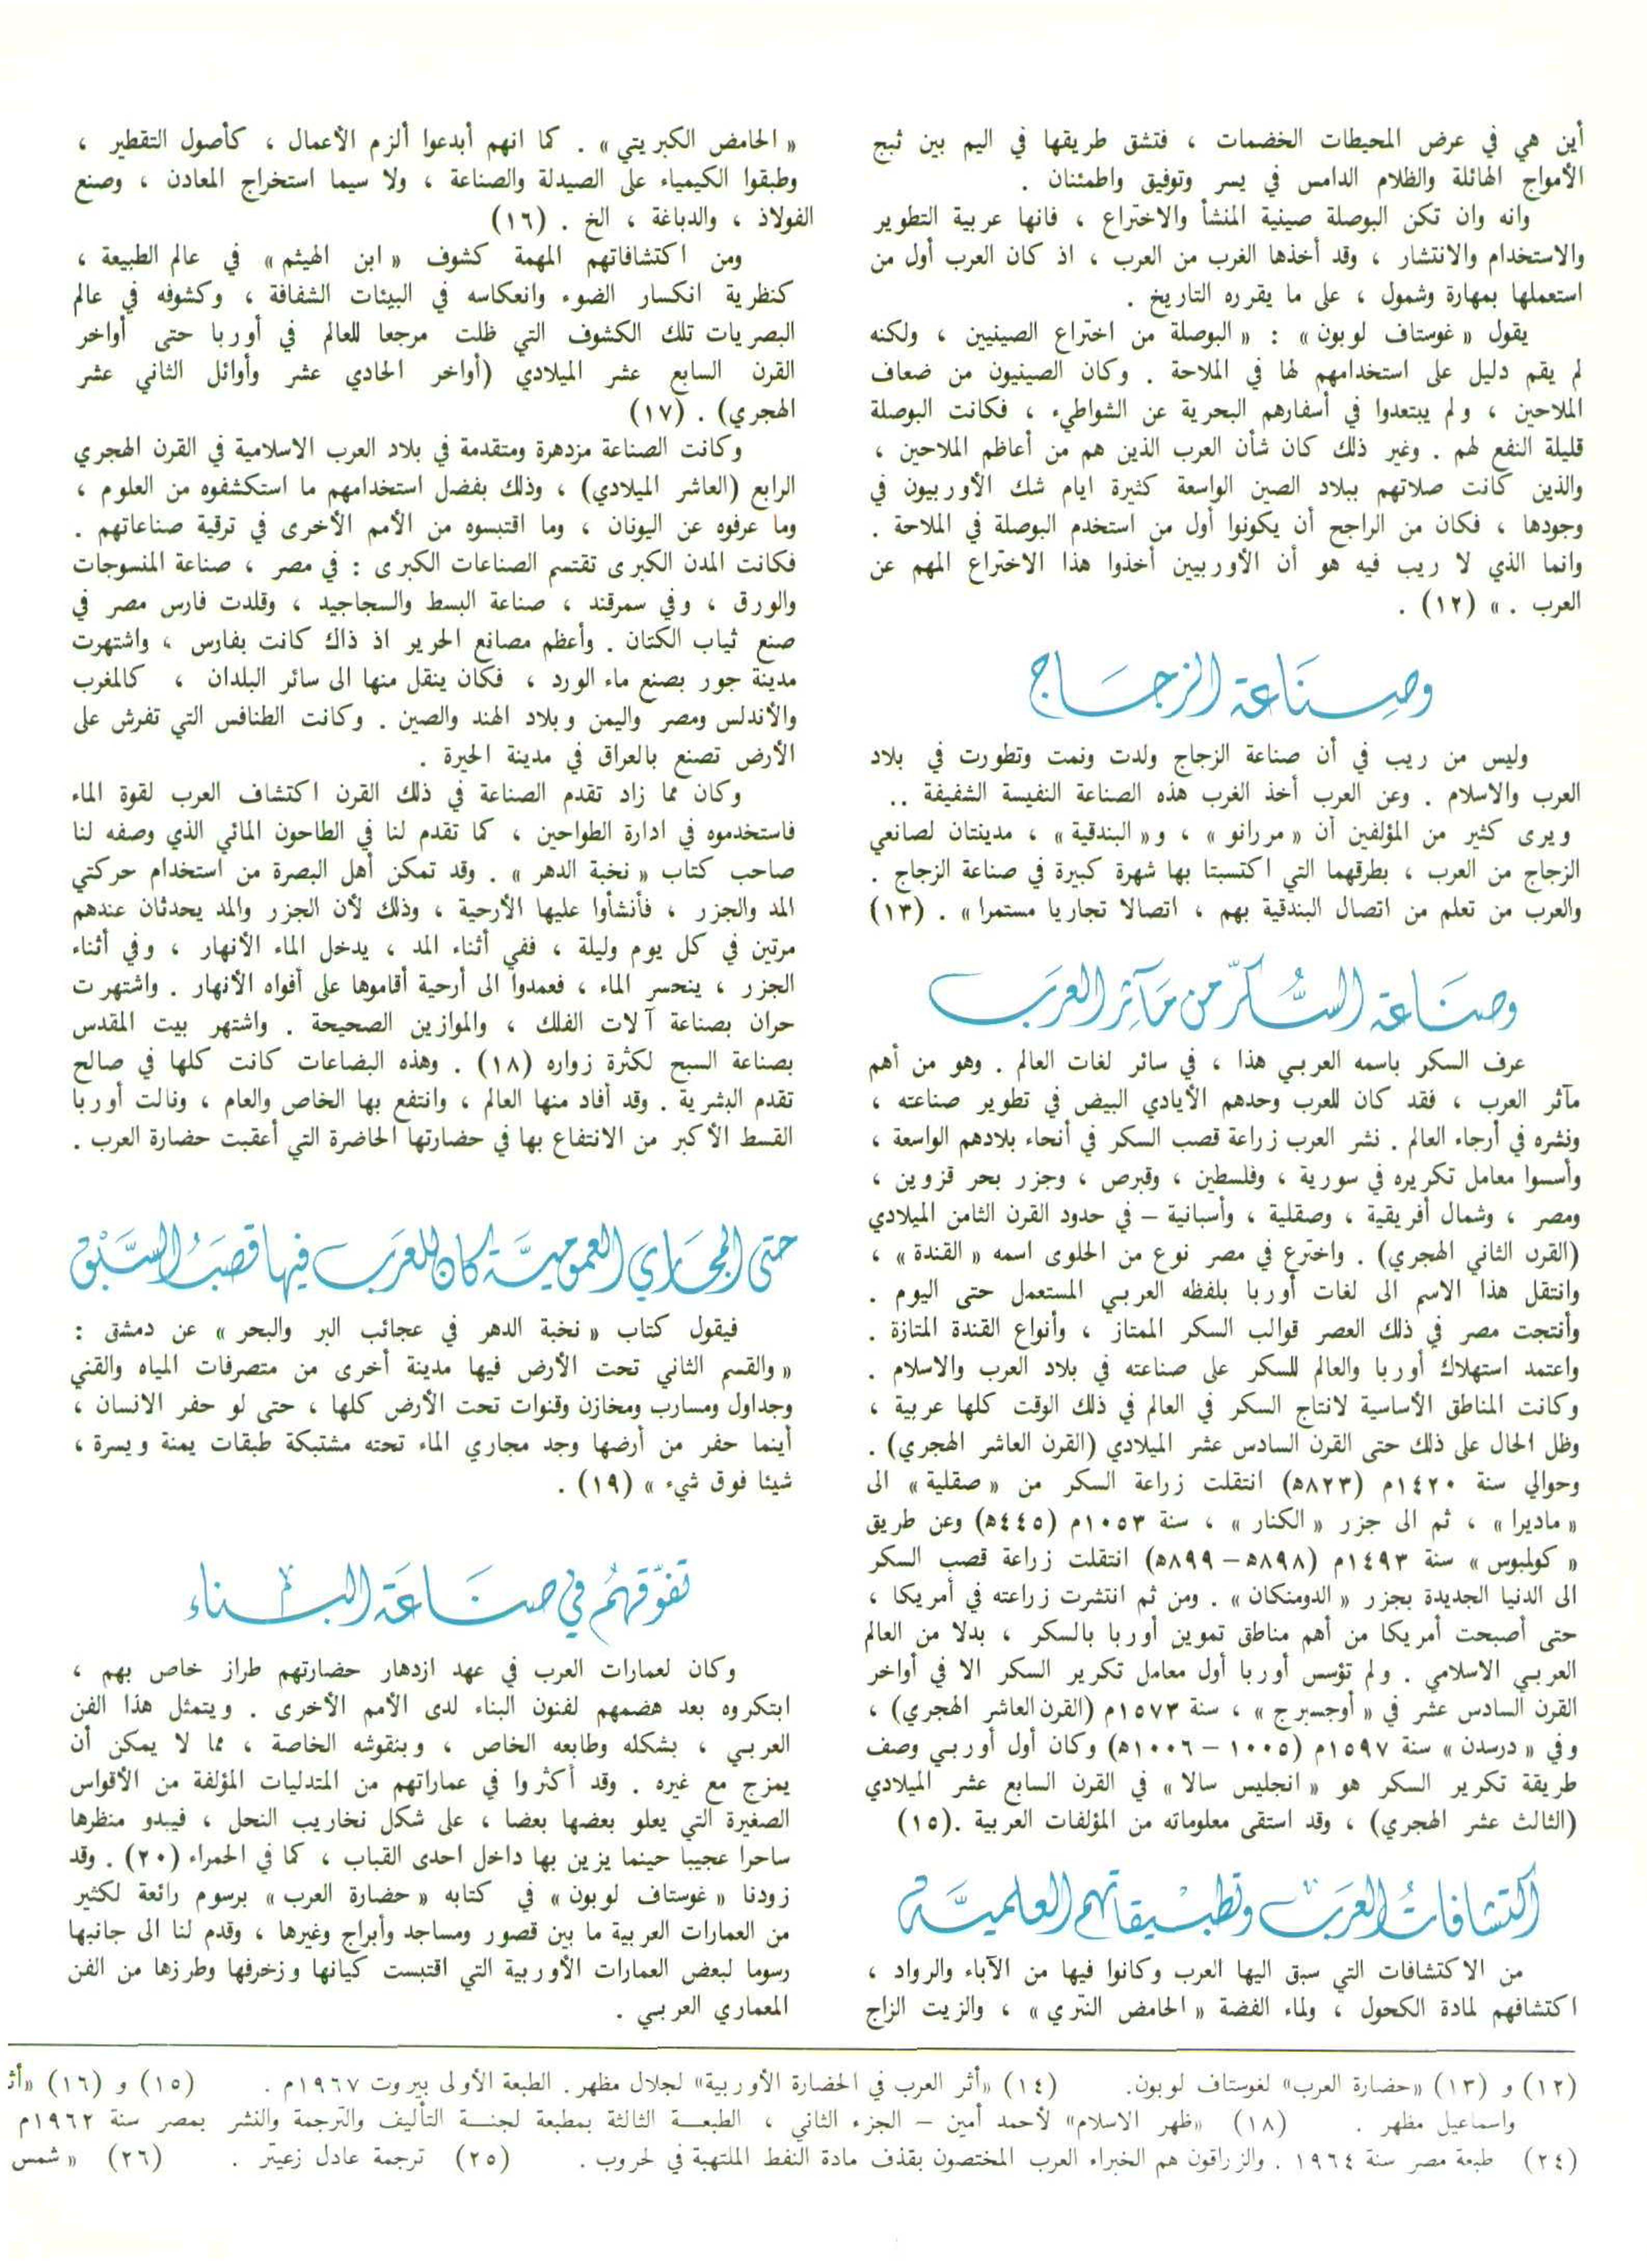 أين هي في عرض المحيطات الخضمات ، فتشق طريقها في اليم بين ثبج
الأمواج الهائلة والظلام الدامس في يسر وتوفيق واطمئنان .
وانه وان تكن البوصلة صينية المنشأ والاختراع ، فانها عربية التطوير
والاستخدام والانتشار ، وقد أخذها الغرب من العرب ، اذ كان العرب أول من
استعملها بمهارة وشمول ، على ما يقرره التاريخ .
يقول « غوستاف لوبون » : « البوصلة من اختراع الصينيين ، ولكنه
لم يقم دليل على استخدامهم لها في الملاحة . وكان الصينيون من ضعاف
الملاحين ، ولم يبتعدوا في أسفارهم البحرية عن الشواطيء ، فكانت البوصلة
قليلة النفع لهم . وغير ذلك كان شأن العرب الذين هم من أعاظم الملاحين ،
والذين كانت صلاتهم ببلاد الصين الواسعة كثيرة ايام شك الأوربيون في
وجودها ، فكان من الراجح أن يكونوا أول من استخدم البوصلة في الملاحة .
وانما الذي لا ريب فيه هو أن الأوربيين أخذوا هذا الاختراع المهم عن
العرب . » (١٢) .
وصناعة الزجاج
وليس من ريب في أن صناعة الزجاج ولدت ونمت وتطورت في بلاد
العرب والاسلام . وعن العرب أخذ الغرب هذه الصناعة النفيسة الشفيفة ..
ويرى كثير من المؤلفين أن « مررانو » ، و« البندقية » ، مدينتان لصانعي
الزجاج من العرب ، بطرقهما التي اكتسبتا بها شهرة كبيرة في صناعة الزجاج .
والعرب من تعلم من اتصال البندقية بهم ، اتصالا تجاريا مستمرا » . (١٣)
وصناعة السكر من مآثر العرب
عرف السكر باسمه العربي هذا ، في سائر لغات العالم . وهو من أهم
مآثر العرب ، فقد كان للعرب وحدهم الأيادي البيض في تطوير صناعته ،
ونشره في أرجاء العالم . نشر العرب زراعة قصب السكر في أنحاء بلادهم الواسعة ،
وأسسوا معامل تكريره في سورية ، وفلسطين ، وقبرص ، وجزر بحر قزوين ،
ومصر ، وشمال أفريقية ، وصقلية ، وأسبانية – في حدود القرن الثامن الميلادي
(القرن الثاني الهجري) . واخترع في مصر نوع من الحلوى اسمه « القندة » ،
وانتقل هذا الاسم الى لغات أوربا بلفظه العربي المستعمل حتى اليوم .
وأنتجت مصر في ذلك العصر قوالب السكر الممتاز ، وأنواع القندة المتازة .
واعتمد استهلاك أوربا والعالم للسكر على صناعته في بلاد العرب والاسلام .
وكانت المناطق الأساسية لانتاج السكر في العالم في ذلك الوقت كلها عربية ،
وظل الحال على ذلك حتى القرن السادس عشر الميلادي (القرن العاشر الهجري) .
وحوالي سنة ١٤٢٠م (٨٢٣ه) انتقلت زراعة السكر من « صقلية » الى
« ماديرا » ، ثم الى جزر « الكنار » ، سنة ١٠٥٣م (٤٤٥ه) وعن طريق
« كولمبوس » سنة ١٤٩٣م (٨٩٨ه – ٨٩٩ه) انتقلت زراعة قصب السكر
الى الدنيا الجديدة بجزر « الدومنكان » . ومن ثم انتشرت زراعته في أمريكا ،
حتى أصبحت أمريكا من أهم مناطق تموين أوربا بالسكر ، بدلا من العالم
العربي الاسلامي . ولم تؤسس أوربا أول معامل تكرير السكر الا في أواخر
القرن السادس عشر في « أوجسبرج » ، سنة ١٥٧٣م (القرن العاشر الهجري) ،
وفي « درسدن » سنة ١٥٩٧م (١٠٠٥ – ١٠٠٦ه) وكان أول أوربي وصف
طريقة تكرير السكر هو « انجليس سالا » في القرن السابع عشر الميلادي
(الثالث عشر الهجري) ، وقد استقى معلوماته من المؤلفات العربية .(١٥)
اكتشافات العرب وتطبيقاتهم العلمية
من الاكتشافات التي سبق اليها العرب وكانوا فيها من الآباء والرواد ،
اكتشافهم لمادة الكحول ، ولماء الفضة « الحامض النتري » ، والزيت الزاج
« الحامض الكبريتي » . كما انهم أبدعوا ألزم الأعمال ، كأصول التقطير ،
وطبقوا الكيمياء على الصيدلة والصناعة ، ولا سيما استخراج المعادن ، وصنع
الفولاذ ، والدباغة ، الخ . (١٦)
ومن اكتشافاتهم المهمة كشوف « ابن الهيثم » في عالم الطبيعة ،
كنظرية انكسار الضوء وانعكاسه في البيئات الشفافة ، وكشوفه في عالم
البصريات تلك الكشوف التي ظلت مرجعا للعالم في أوربا حتى أواخر
القرن السابع عشر الميلادي (أواخر الحادي عشر وأوائل الثاني عشر
الهجري) . (١٧)
وكانت الصناعة مزدهرة ومتقدمة في بلاد العرب الاسلامية في القرن الهجري
الرابع (العاشر الميلادي) ، وذلك بفضل استخدامهم ما استكشفوه من العلوم ،
وما عرفوه عن اليونان ، وما اقتبسوه من الأمم الأخرى في ترقية صناعاتهم .
فكانت المدن الكبرى تقتسم الصناعات الكبرى : في مصر ، صناعة المنسوجات
والورق ، وفي سمرقند ، صناعة البسط والسجاجيد ، وقلدت فارس مصر في
صنع ثياب الكتان . وأعظم مصانع الحرير اذ ذاك كانت بفارس ، واشتهرت
مدينة جور بصنع ماء الورد ، فكان ينقل منها الى سائر البلدان ، كالمغرب
والأندلس ومصر واليمن وبلاد الهند والصين . وكانت الطنافس التي تفرش على
الأرض تصنع بالعراق في مدينة الحيرة .
وكان مما زاد تقدم الصناعة في ذلك القرن اكتشاف العرب لقوة الماء
فاستخدموه في ادارة الطواحين ، كما تقدم لنا في الطاحون المائي الذي وصفه لنا
صاحب كتاب « نخبة الدهر » . وقد تمكن أهل البصرة من استخدام حركتي
المد والجزر ، فأنشأوا عليها الأرحية ، وذلك لأن الجزر والمد يحدثان عندهم
مرتين في كل يوم وليلة ، ففي أثناء المد ، يدخل الماء الأنهار ، وفي أثناء
الجزر ، ينحسر الماء ، فعمدوا الى أرحية أقاموها على أفواه الأنهار . واشتهرت
حران بصناعة آلات الفلك ، والموازين الصحيحة . واشتهر بيت المقدس
بصناعة السبح لكثرة زواره (١٨) . وهذه البضاعات كانت كلها في صالح
تقدم البشرية . وقد أفاد منها العالم ، وانتفع بها الخاص والعام ، ونالت أوربا
القسط الأكبر من الانتفاع بها في حضارتها الحاضرة التي أعقبت حضارة العرب .
حتى المجاري العمومية كان للعرب فيها قصب السبق
فيقول كتاب « نخبة الدهر في عجائب البر والبحر » عن دمشق :
« والقسم الثاني تحت الأرض فيها مدينة أخرى من متصرفات المياه والقني
وجداول ومسارب ومخازن وقنوات تحت الأرض كلها ، حتى لو حفر الانسان ،
أينما حفر من أرضها وجد مجاري الماء تحته مشتبكة طبقات يمنة ويسرة ،
شيئا فوق شيء » (١٩) .
تفوقهم في صناعة البناء
وكان لعمارات العرب في عهد ازدهار حضارتهم طراز خاص بهم ،
ابتكروه بعد هضمهم لفنون البناء لدى الأمم الأخرى . ويتمثل هذا الفن
العربي ، بشكله وطابعه الخاص ، وبنقوشه الخاصة ، مما لا يمكن أن
يمزج مع غيره . وقد أكثروا في عماراتهم من المتدليات المؤلفة من الأقواس
الصغيرة التي يعلو بعضها بعضا ، على شكل نخاريب النحل ، فيبدو منظرها
ساحرا عجيبا حينما يزين بها داخل احدى القباب ، كما في الحمراء (٢٠) . وقد
زودنا « غوستاف لوبون » في كتابه « حضارة العرب » برسوم رائعة لكثير
من العمارات العربية ما بين قصور ومساجد وأبراج وغيرها ، وقدم لنا الى جانبها
رسوما لبعض العمارات الأوربية التي اقتبست كيانها وزخرفها وطرزها من الفن
المعماري العربي .
(١٢) و (١٣) «حضارة العرب» لغوستاف لوبون. (١٤) «أثر العرب في الحضارة الأوربية» لجلال مظهر. الطبعة الأولى بيروت ١٩٦٧م . (١٥) و (١٦) «أثر
واسماعيل مظهر . (١٨) «ظهر الاسلام» لأحمد أمين – الجزء الثاني ، الطبعة الثالثة بمطبعة لجنة التأليف والترجمة والنشر بمصر سنة ١٩٦٢م
(٢٤) طبعة مصر سنة ١٩٦٤ . والزراقون هم الخبراء العرب المختصون بقذف مادة النفط الملتهبة في لحروب . (٢٥) ترجمة عادل زعيتر . (٢٦) « شمس